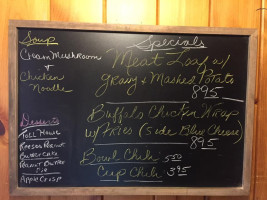 Soup
Cream Mushroom
+
Chicken
Noodle
Desserts
Toll House
Reeses Peanut
Butter Cake
Peanut Butter
Pie
Apple Crisp
Specials
Meat Loaf w/
Gravy + Mashed Potato
8.95
Buffalo Chicken Wrap
w/ Fries (Side Blue Cheese)
8.95
Bowl Chili 5.00
Cup Chili 3.95